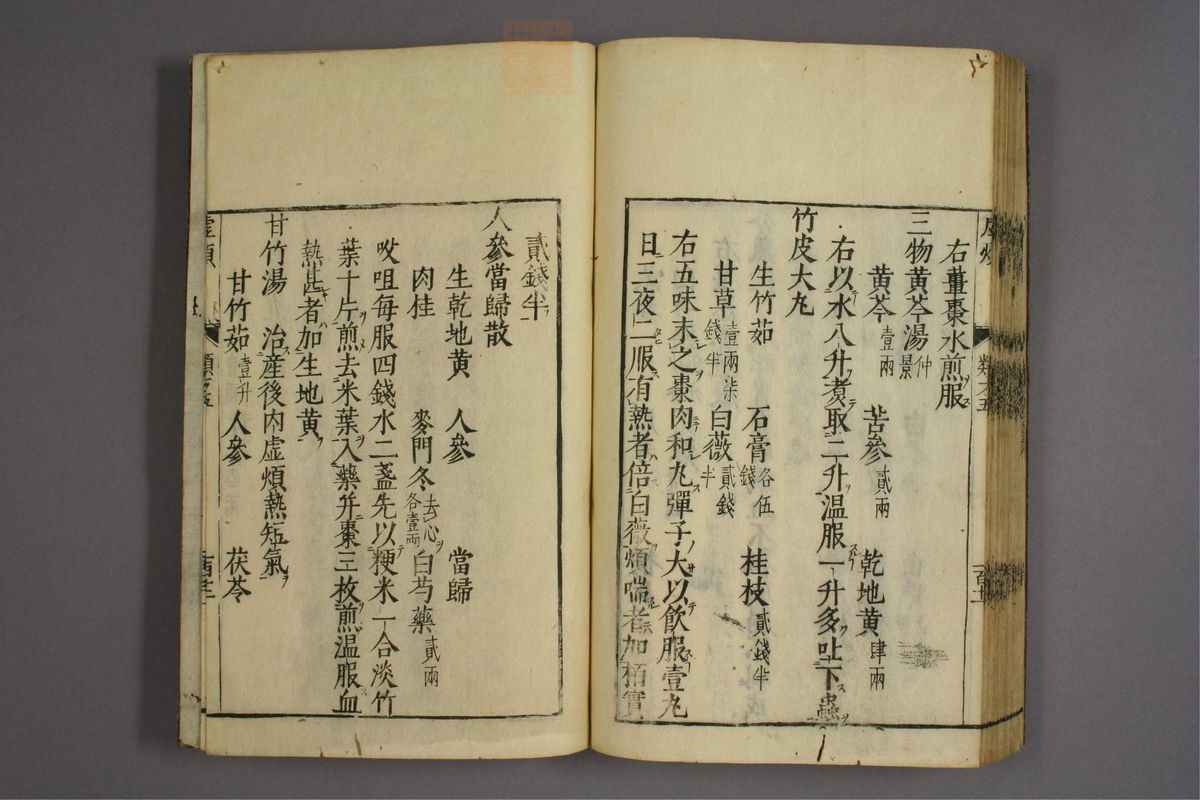 右薑棗水煎服
三物黄芩湯仲景
黄芩壹兩 苦參貳兩 乾地黄肆兩
右以水八升煮取二升温服一升多吐下蟲
竹皮大丸
生竹茹 石膏各伍錢 桂枝貳錢半
甘草壹兩柒錢半 白薇貳錢半
右五味末之棗肉和丸彈子大以飲服壹丸
日三夜二服有熱者倍白薇煩喘者加栢實
貳錢半
人參當歸散
生乾地黄 人參 當歸
肉桂 麥門冬去心各壹兩 白芍藥貳兩
㕮咀每服四錢水二盞先以粳米一合淡竹
葉十片煎去米葉入藥并棗三枚煎温服血
熱甚者加生地黄
甘竹湯 治産後内虚煩熱短氣
甘竹茹壹升 人參 茯苓
虚煩